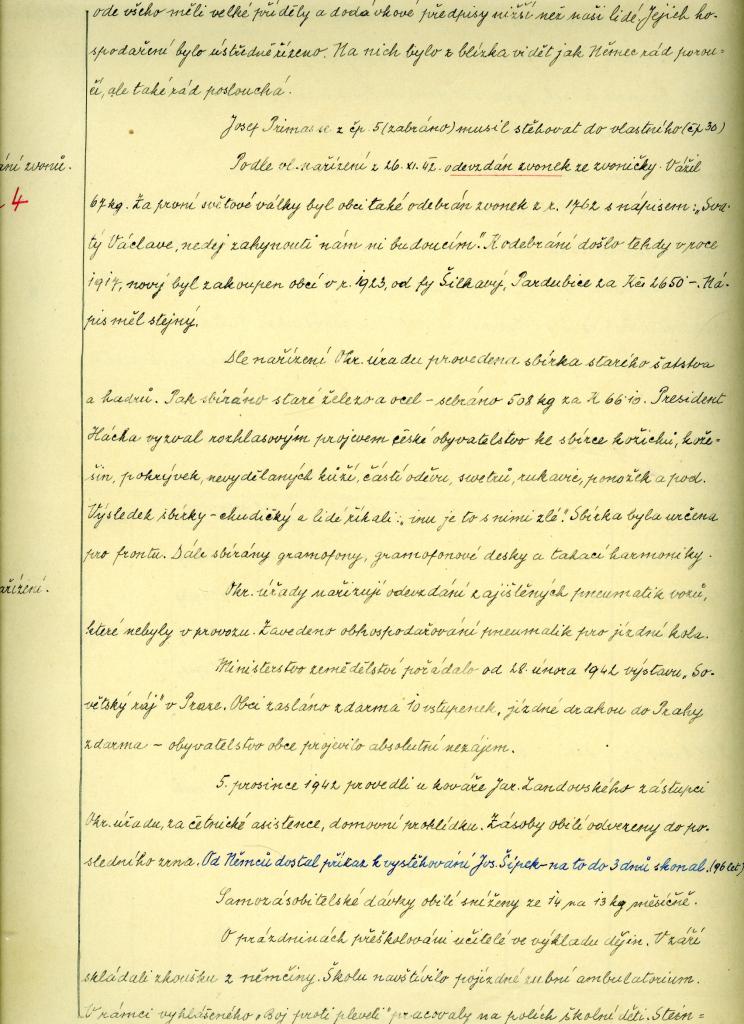 ode všeho měli velké příděly a dodávkové předpisy nižší než naši lidé. Jejich ho-
spodaření bylo ústředně řízeno. Na nich bylo z blízka vidět jak Němec rád porou-
čí, ale také rád poslouchá.
Josef Primas se z čp. 5 (zabráno) musil stěhovat do vlastního (čp 30)
ání zvonů.
Podle vl. nařízení z 26. XI. 42. odevzdán zvonek ze zvoničky. Vážil
4
67 kg. Za první světové války byl obci také odebrán zvonek z r. 1762 s nápisem: „Sva-
tý Václave, nedej zahynouti nám ni budoucím". K odebrání došlo tehdy v roce
1917, nový byl zakoupen obcí v r. 1923, od fy Šilhavý, Pardubice za Kčs 2650·-. Ná-
pis měl stejný.
Dle nařízení Okr. úradu provedena sbírka starého šatstva
a hadrů. Pak sbíráno staré železo a ocel - sebráno 508 kg za K 66·10. President
Hácha vyzval rozhlasovým projevem české obyvatelstvo ke sbírce kožichů, kože-
šin, pokrývek, nevydělaných kůží, částí oděvu, swetrů, rukavic, ponožek a pod.
Výsledek sbírky - chudičký a lidé říkali: „inu je to s nimi zlé." Sbírka byla určena
pro frontu. Dále sbírány gramofony, gramofonové desky a tahací harmoniky.
ařízení.
Okr. úřady nařizují odevzdání zajištěných pneumatik vozů,
které nebyly v provozu. Zavedeno obhospodařování pneumatik pro jízdní kola.
Ministerstvo zemědělství pořádalo od 28. února 1942 výstavu „So-
větský ráj" v Praze. Obci zasláno zdarma 10 vstupenek, jízdné drahou do Prahy
zdarma - obyvatelstvo obce projevilo absolutní nezájem.
5. prosince 1942 provedli u kováře Jar. Landovského zástupci
Okr. úřadu, za četnické asistence, domovní prohlídku. Zásoby obilí odvezeny do po-
sledního zrna. Od Němců dostal příkaz k vystěhování Jos. Šípek - na to do 3 dnů skonal. (96 let)
Samozásobitelské dávky obilí sníženy ze 14 na 13 kg měsíčně.
O prázdninách přeškolováni učitelé ve výkladu dějin. V září
skládali zkoušku z němčiny. Školu navštívilo pojízdné zubní ambulatorium.
V rámci vyhlášeného „Boj proti pleveli" pracovaly na polích školní děti. Stein=